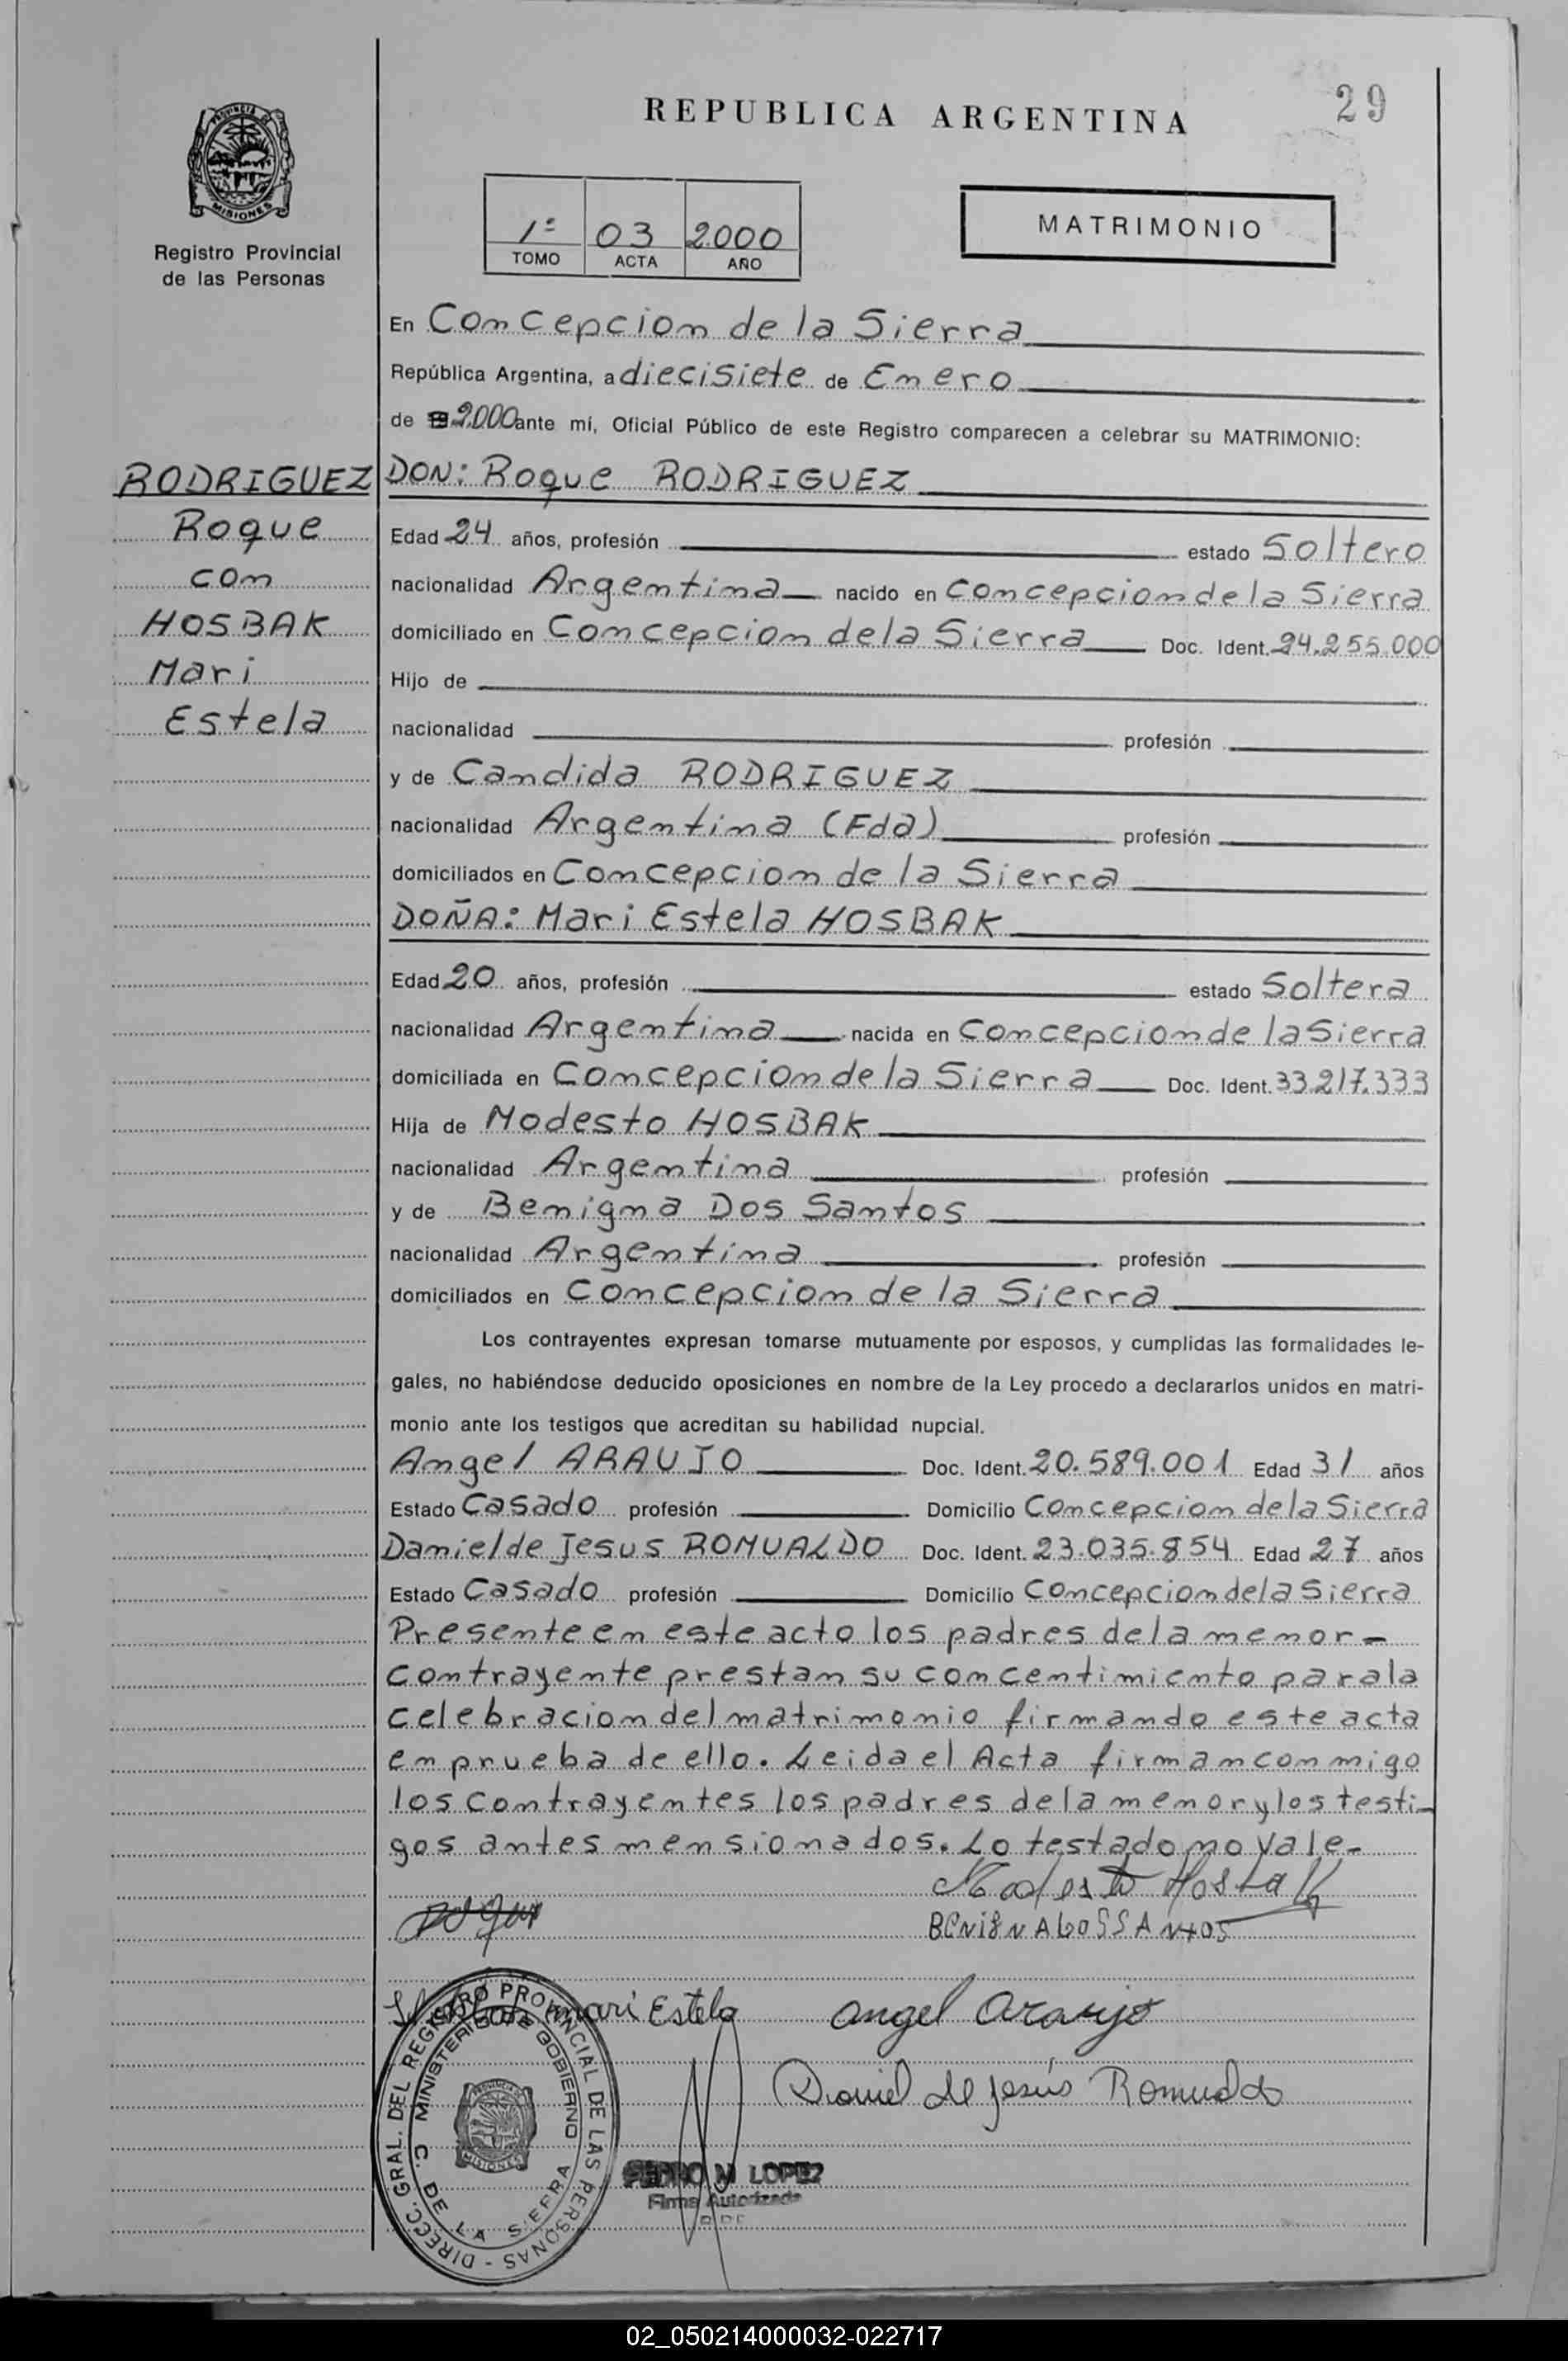 29
REPUBLICA ARGENTINA
PROVINCIA DE
MISIONES
Registro Provincial
de las Personas
1º 03 2000
TOMO ACTA AÑO
MATRIMONIO
En Concepcion de la Sierra
República Argentina, a diecisiete de Enero
de 2.000 ante mí, Oficial Público de este Registro comparecen a celebrar su MATRIMONIO:
RODRIGUEZ
Roque
con
HOSBAK
Mari
Estela
DON: Roque RODRIGUEZ
Edad 24 años, profesión estado Soltero
nacionalidad Argentina nacido en Concepcion de la Sierra
domiciliado en Concepcion de la Sierra Doc. Ident. 24.255.000
Hijo de
nacionalidad profesión
y de Candida RODRIGUEZ
nacionalidad Argentina (Fda) profesión
domiciliados en Concepcion de la Sierra
DOÑA: Mari Estela HOSBAK
Edad 20 años, profesión estado Soltera
nacionalidad Argentina nacida en Concepcion de la Sierra
domiciliada en Concepcion de la Sierra Doc. Ident. 33.217.333
Hija de Modesto HOSBAK
nacionalidad Argentina profesión
y de Benigna Dos Santos
nacionalidad Argentina profesión
domiciliados en Concepcion de la Sierra
Los contrayentes expresan tomarse mutuamente por esposos, y cumplidas las formalidades le-
gales, no habiéndose deducido oposiciones en nombre de la Ley procedo a declararlos unidos en matri-
monio ante los testigos que acreditan su habilidad nupcial.
Angel ARAUJO Doc. Ident. 20.589.001 Edad 31 años
Estado Casado profesión Domicilio Concepcion de la Sierra
Daniel de Jesus ROMUALDO Doc. Ident. 23.035.854 Edad 27 años
Estado Casado profesión Domicilio Concepcion de la Sierra
Presente en este acto los padres de la menor-
contrayente prestan su concentimiento para la
celebracion del matrimonio firmando este acta
en prueba de ello. Leida el Acta firman conmigo
los contrayentes los padres de la menor y los testi-
gos antes mensionados. Lo testado no vale-
Modesto Hosbak
Roque
BENIGNA DOSSANTOS
Mari Estela
Angel Araujo
Daniel de Jesús Romualdo
DIREC. GRAL. DEL REGISTRO PROVINCIAL DE LAS PERSONAS -
MINISTERIO DE GOBIERNO
C. DE LA SIERRA
MISIONES
PEDRO M LOPEZ
Firma Autorizada
02_050214000032-022717